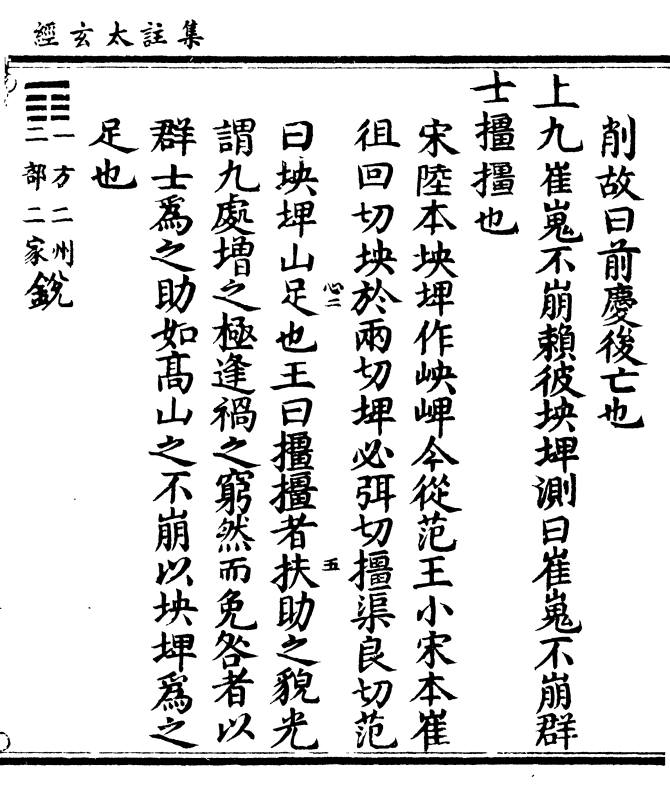 集註太玄經
削故曰前慶後亡也
上九崔嵬不崩賴彼坱𡊸測曰崔嵬不崩群
士橿橿也
宋陸本坱𡊸作岟崥今從范王小宋本崔
徂回切坱於兩切𡊸必弭切橿渠良切范
曰坱𡊸山足也王曰橿橿者扶助之貌光
心二
五
謂九處增之極逢禍之窮然而免咎者以
群士爲之助如高山之不崩以坱𡊸爲之
足也
一方二州
二部二家
銳